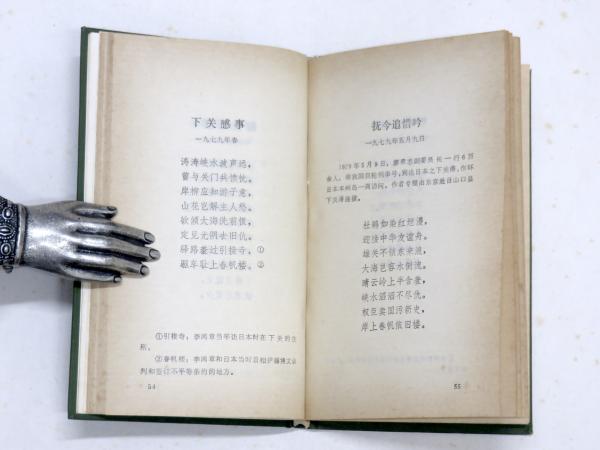 下关感事
一九七九年春
涛涛峡水波声远，
曾与关门共愤忧。
岸柳应知游子意，
山花岂解主人愁。
欲倾大海洗前恨，
定见光阴去旧仇。
驿路羞过引接寺，①
避车耻上春帆楼。②
①引接寺：李鸿章当年达日本时在下关的住
所。
②春帆楼：李鸿章和日本当时首相伊藤博文谈
判和签订不平等条约的地方。
54
抚今追惜吟
一九七九年五月九日
1979年5月9日，廖承志副委员长一行6百
余人，乘我国巨轮明华号，到达日本之下关港，作环
日本本州岛一周访问。作者专程由东京赴山口县
下关港接。
杜鹃如染红烂漫，
迎接中华友谊舟。
雄关不锁东来浪，
大海岂容水倒流。
晴云岭上平含羞，
峡水滔滔不尽仇。
权臣卖国污新史，
岸上春帆依旧楼。
55